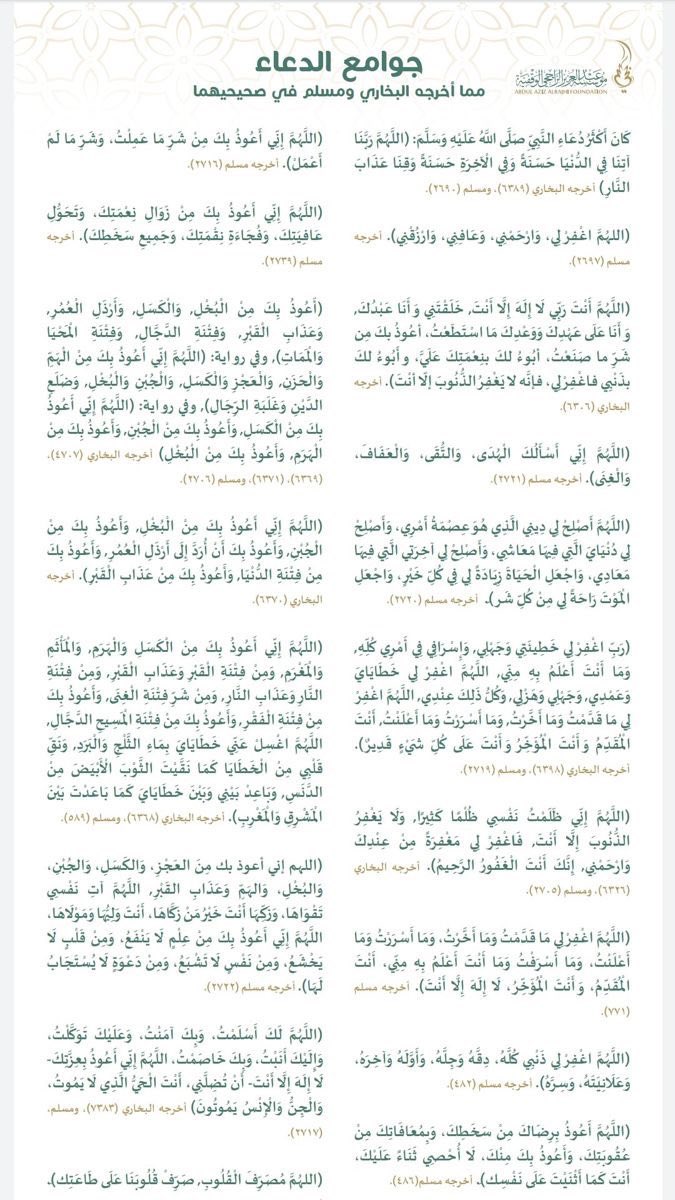 جوامع الدعاء
مما أخرجه البخاري ومسلم في صحيحيهما
مؤسسة عبدالعزيز الراجحي الوقفية
ABDUL AZIZ ALRAJHI FOUNDATION
كَانَ أَكْثَرُ دُعَاءِ النَّبِيِّ صَلَّى اللَّهُ عَلَيْهِ وَسَلَّمَ: (اللَّهُمَّ رَبَّنَا
آتِنَا فِي الدُّنْيَا حَسَنَةً وَفِي الْآخِرَةِ حَسَنَةً وَقِنَا عَذَابَ
النَّارِ) أخرجه البخاري (٦٣٨٩)، ومسلم (٢٦٩٠).
(اللهُمَّ اغْفِرْ لِي، وَارْحَمْنِي، وَعَافِنِي، وَارْزُقْنِي). أخرجه
مسلم (٢٦٩٧).
(اللَّهُمَّ أَنْتَ رَبِّي لَا إِلَهَ إِلَّا أَنْتَ, خَلَقْتَنِي وَأَنَا عَبْدُكَ,
وَأَنَا عَلَى عَهْدِكَ وَوَعْدِكَ مَا اسْتَطَعْتُ، أعُوذُ بكَ مِن
شَرِّ ما صَنَعْتُ، أبُوءُ لكَ بنِعْمَتِكَ عَلَيَّ، وأَبُوءُ لكَ
بذَنْبِي فاغْفِرْ لِي، فإنَّه لا يَغْفِرُ الذُّنُوبَ إلَّا أنْتَ). أخرجه
البخاري (٦٣٠٦).
(اللَّهُمَّ إِنِّي أَسْأَلُكَ الْهُدَى، وَالتُّقَى، وَالْعَفَافَ،
وَالْغِنَى). أخرجه مسلم (٢٧٢١).
(اللَّهُمَّ أَصْلِحْ لِي دِينِي الَّذِي هُوَ عِصْمَةُ أَمْرِي، وَأَصْلِحْ
لِي دُنْيَايَ الَّتِي فِيهَا مَعَاشِي، وَأَصْلِحْ لِي آخِرَتِي الَّتِي فِيهَا
مَعَادِي، وَاجْعَلِ الْحَيَاةَ زِيَادَةً لِي فِي كُلِّ خَيْرٍ، وَاجْعَلِ
الْمَوْتَ رَاحَةً لِي مِنْ كُلِّ شَر). أخرجه مسلم (٢٧٢٠).
(رَبِّ اغْفِرْ لِي خَطِيئَتِي وَجَهْلِي, وَإِسْرَافِي فِي أَمْرِي كُلِّهِ,
وَمَا أَنْتَ أَعْلَمُ بِهِ مِنِّي, اللَّهُمَّ اغْفِرْ لِي خَطَايَايَ
وَعَمْدِي, وَجَهْلِي وَهَزْلِي, وَكُلُّ ذَلِكَ عِنْدِي, اللَّهُمَّ اغْفِرْ
لِي مَا قَدَّمْتُ وَمَا أَخَّرْتُ, وَمَا أَسْرَرْتُ وَمَا أَعْلَنْتُ, أَنْتَ
الْمُقَدِّمُ وَأَنْتَ الْمُؤَخِّرُ وَأَنْتَ عَلَى كُلِّ شَيْءٍ قَدِيرٌ).
أخرجه البخاري (٦٣٩٨)، ومسلم (٢٧١٩).
(اللَّهُمَّ إِنِّي ظَلَمْتُ نَفْسِي ظُلْمًا كَثِيرًا, وَلَا يَغْفِرُ
الذُّنُوبَ إِلَّا أَنْتَ, فَاغْفِرْ لِي مَغْفِرَةً مِنْ عِنْدِكَ
وَارْحَمْنِي, إِنَّكَ أَنْتَ الْغَفُورُ الرَّحِيمُ). أخرجه البخاري
(٦٣٢٦)، ومسلم (٢٧٠٥).
(اللَّهُمَّ اغْفِرْ لِي مَا قَدَّمْتُ وَمَا أَخَّرْتُ، وَمَا أَسْرَرْتُ وَمَا
أَعْلَنْتُ، وَمَا أَسْرَفْتُ وَمَا أَنْتَ أَعْلَمُ بِهِ مِنِّي، أَنْتَ
الْمُقَدِّمُ، وَأَنْتَ الْمُؤَخِّرُ، لَا إِلَهَ إِلَّا أَنْتَ). أخرجه مسلم
(٧٧١).
(اللَّهُمَّ اغْفِرْ لِي ذَنْبِي كُلَّهُ، دِقَّهُ وَجِلَّهُ، وَأَوَّلَهُ وَآخِرَهُ،
وَعَلَانِيَتَهُ، وَسِرَّهُ). أخرجه مسلم (٤٨٢).
(اللَّهُمَّ أَعُوذُ بِرِضَاكَ مِنْ سَخَطِكَ، وَبِمُعَافَاتِكَ مِنْ
عُقُوبَتِكَ، وَأَعُوذُ بِكَ مِنْكَ، لَا أُحْصِي ثَنَاءً عَلَيْكَ،
أَنْتَ كَمَا أَثْنَيْتَ عَلَى نَفْسِكَ). أخرجه مسلم(٤٨٦).
(اللَّهُمَّ إِنِّي أَعُوذُ بِكَ مِنْ شَرِّ مَا عَمِلْتُ، وَشَرِّ مَا لَمْ
أَعْمَلْ). أخرجه مسلم (٢٧١٦).
(اللَّهُمَّ إِنِّي أَعُوذُ بِكَ مِنْ زَوَالِ نِعْمَتِكَ، وَتَحَوُّلِ
عَافِيَتِكَ، وَفُجَاءَةِ نِقْمَتِكَ، وَجَمِيعِ سَخَطِكَ). أخرجه
مسلم (٢٧٣٩).
(أَعُوذُ بِكَ مِنْ الْبُخْلِ, وَالْكَسَلِ, وَأَرْذَلِ الْعُمُرِ,
وَعَذَابِ الْقَبْرِ, وَفِتْنَةِ الدَّجَّالِ, وَفِتْنَةِ الْمَحْيَا
وَالْمَمَاتِ)، وفي رواية: (اللَّهُمَّ إِنِّي أَعُوذُ بِكَ مِنْ الْهَمِّ
وَالْحَزَنِ, وَالْعَجْزِ وَالْكَسَلِ, وَالْجُبْنِ وَالْبُخْلِ, وَضَلَعِ
الدَّيْنِ وَغَلَبَةِ الرِّجَالِ)، وفي رواية: (اللَّهُمَّ إِنِّي أَعُوذُ
بِكَ مِنْ الْكَسَلِ, وَأَعُوذُ بِكَ مِنْ الْجُبْنِ, وَأَعُوذُ بِكَ مِنْ
الْهَرَمِ, وَأَعُوذُ بِكَ مِنْ الْبُخْلِ) أخرجه البخاري (٤٧٠٧)،
(٦٣٦٩)، (٦٣٧١)، ومسلم (٢٧٠٦).
(اللَّهُمَّ إِنِّي أَعُوذُ بِكَ مِنْ الْبُخْلِ, وَأَعُوذُ بِكَ مِنْ
الْجُبْنِ, وَأَعُوذُ بِكَ أَنْ أُرَدَّ إِلَى أَرْذَلِ الْعُمُرِ, وَأَعُوذُ بِكَ
مِنْ فِتْنَةِ الدُّنْيَا, وَأَعُوذُ بِكَ مِنْ عَذَابِ الْقَبْرِ). أخرجه
البخاري (٦٣٧٠).
(اللَّهُمَّ إِنِّي أَعُوذُ بِكَ مِنْ الْكَسَلِ وَالْهَرَمِ, وَالْمَأْثَمِ
وَالْمَغْرَمِ, وَمِنْ فِتْنَةِ الْقَبْرِ وَعَذَابِ الْقَبْرِ, وَمِنْ فِتْنَةِ
النَّارِ وَعَذَابِ النَّارِ, وَمِنْ شَرِّ فِتْنَةِ الْغِنَى, وَأَعُوذُ بِكَ
مِنْ فِتْنَةِ الْفَقْرِ, وَأَعُوذُ بِكَ مِنْ فِتْنَةِ الْمَسِيحِ الدَّجَّالِ,
اللَّهُمَّ اغْسِلْ عَنِّي خَطَايَايَ بِمَاءِ الثَّلْجِ وَالْبَرَدِ, وَنَقِّ
قَلْبِي مِنْ الْخَطَايَا كَمَا نَقَّيْتَ الثَّوْبَ الْأَبْيَضَ مِنْ
الدَّنَسِ, وَبَاعِدْ بَيْنِي وَبَيْنَ خَطَايَايَ كَمَا بَاعَدْتَ بَيْنَ
الْمَشْرِقِ وَالْمَغْرِبِ). أخرجه البخاري (٦٣٦٨)، ومسلم (٥٨٩).
(اللهم إني أعوذ بك مِنَ العَجْزِ، وَالكَسَلِ، وَالجُبْنِ،
وَالبُخْلِ، وَالهَمِّ وَعَذَابِ القَبْرِ, اللَّهُمَّ آتِ نَفْسِي
تَقْوَاهَا، وَزَكِّهَا أَنْتَ خَيْرُ مَنْ زَكَّاهَا، أَنْتَ وَلِيُّهَا وَمَوْلَاهَا،
اللَّهُمَّ إِنِّي أَعُوذُ بِكَ مِنْ عِلْمٍ لَا يَنْفَعُ، وَمِنْ قَلْبٍ لَا
يَخْشَعُ، وَمِنْ نَفْسٍ لَا تَشْبَعُ، وَمِنْ دَعْوَةٍ لَا يُسْتَجَابُ
لَهَا). أخرجه مسلم (٢٧٢٢).
(اللَّهُمَّ لَكَ أَسْلَمْتُ، وَبِكَ آمَنْتُ، وَعَلَيْكَ تَوَكَّلْتُ،
وَإِلَيْكَ أَنَبْتُ، وَبِكَ خَاصَمْتُ، اللَّهُمَّ إِنِّي أَعُوذُ بِعِزَّتِكَ-
لَا إِلَهَ إِلَّا أَنْتَ- أَنْ تُضِلَّنِي، أَنْتَ الْحَيُّ الَّذِي لَا يَمُوتُ،
وَالْجِنُّ وَالْإِنْسُ يَمُوتُونَ) أخرجه البخاري (٧٣٨٣)، ومسلم،
(٢٧١٧).
(اللهُمَّ مُصَرِّفَ الْقُلُوبِ, صَرِّفْ قُلُوبَنَا عَلَى طَاعَتِكَ).